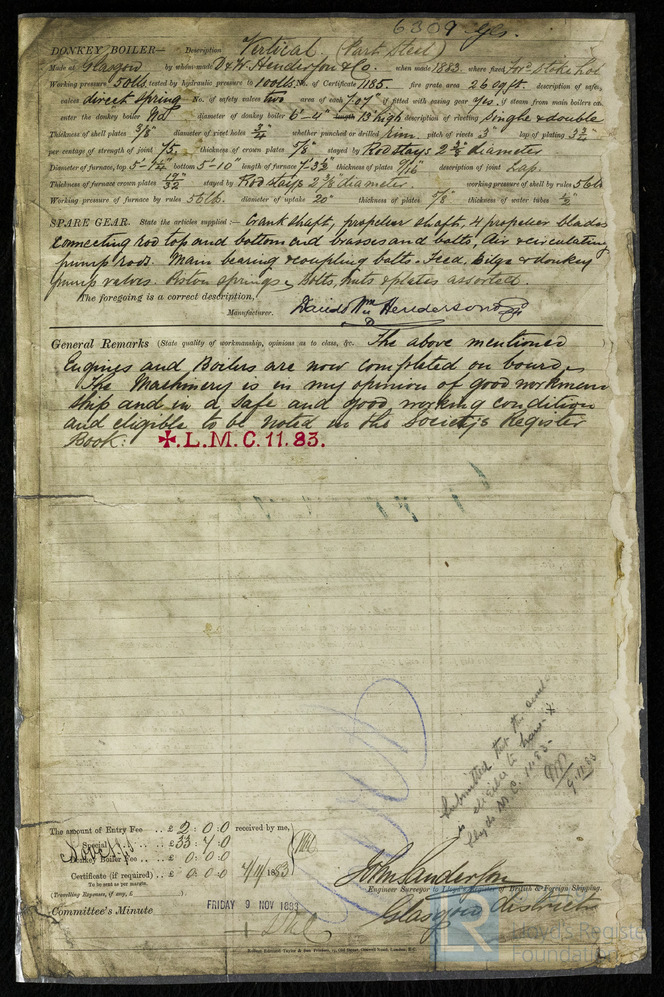 6309 Gls.
DONKEY BOILER— Description Vertical (Part Steel)
Made at Glasgow by whom made D & W. Henderson & Co. when made 1883. where fixed
Working pressure 50 lb tested by hydraulic pressure to 100 lbs No. of Certificate 1185. fire grate area 26 sq ft. description of safety
valves direct spring No. of safety valves two area of each 7.07" if fitted with easing gear yes. if steam from main boilers can
enter the donkey boiler No diameter of donkey boiler 6'-4" length 13' high description of riveting Single & double
Thickness of shell plates 3/8" diameter of rivet holes 3/4" whether punched or drilled rim. pitch of rivets 3" lap of plating
per centage of strength of joint 75. thickness of crown plates 5/8" stayed by Rod stays 2 3/8 diameter
Diameter of furnace, top bottom 5'-10" length of furnace thickness of plates 9/16" description of joint Lap.
Thickness of furnace crown plates 19/32" stayed by Rod stays 2 3/8 diameter. working pressure of shell by rules 56 lb
Working pressure of furnace by rules 56 lb. diameter of uptake 20" thickness of plates 5/8" thickness of water tubes 1/2"
SPARE GEAR. State the articles supplied:— Crank shaft, propeller shaft, 4 propeller blades
Connecting rod top and bottom end brasses and bolts, Air & circulating
pump rods. Main bearing & coupling bolts. Feed, bilge & donkey
pump valves. Piston springs, Bolts, nuts & plates assorted.
The foregoing is a correct description,
Manufacturer. David & Wm Henderson & Co
General Remarks (State quality of workmanship, opinions as to class, &c. The above mentioned
Engines and Boilers are now completed on board.
The Machinery is in my opinion of good workman
ship and in a safe and good working condition
and eligible to be noted in the Society's Register
Book. ✠.L.M.C.11.83.
Submitted that this vessel
is eligible to have ✠
Lloyds M.C. 11.83.
9.11.83
The amount of Entry Fee .. £ 2 : 0 : 0 received by me,
Special .. £ 33 : 4 : 0
Donkey Boiler Fee .. £ 0 : 0 : 0
Certificate (if required) .. £ 0 : 0 : 0 7/11/1883
To be sent as per margin.
(Travelling Expenses, if any, £ )
John Sanderson
Engineer Surveyor to Lloyd's Register of British & Foreign Shipping.
Glasgow district
Committee's Minute
FRIDAY 9 NOV 1883
+ LMC
LR Lloyd's Register
Foundation